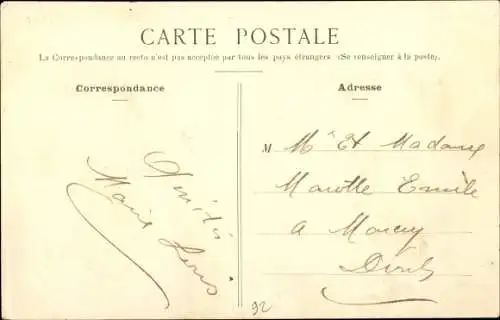 CARTE POSTALE
La Correspondance au recto n'est pas acceptée par tous les pays étrangers (Se renseigner à la poste).
Correspondance
Adresse
Amitié
Marie Louis
M Mr Et Madame
Marotte Emile
a
92